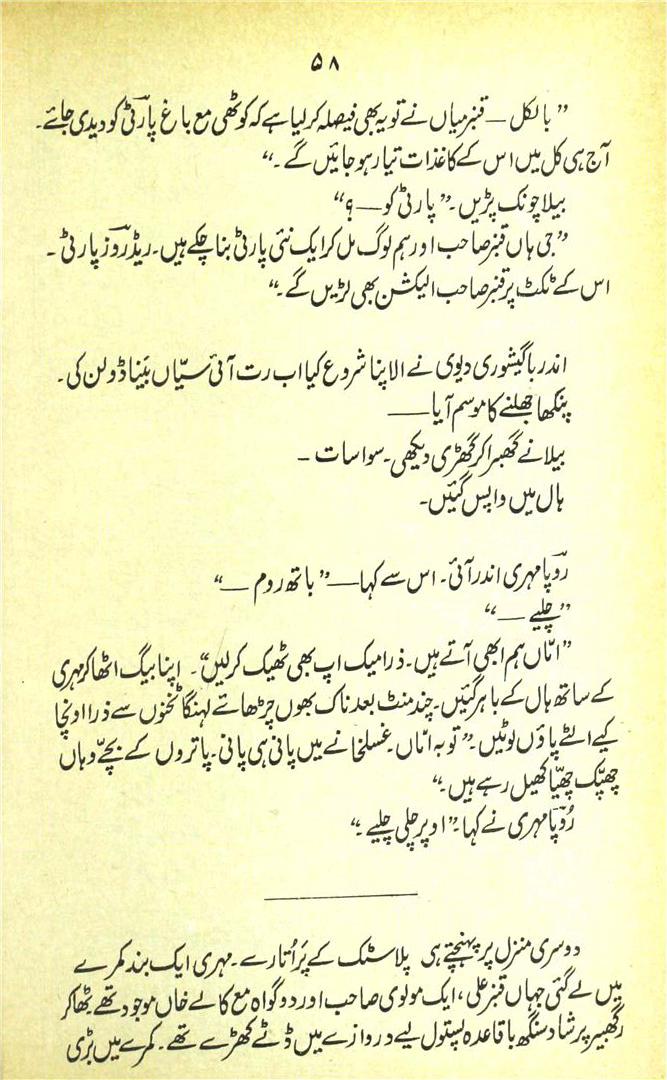 ۵۸
”بالکل — قنبر میاں نے تو یہ بھی فیصلہ کر لیا ہے کہ کوٹھی مع باغ پارٹی کو دیدی جائے۔
آج ہی کل میں اس کے کاغذات تیار ہو جائیں گے۔“
بیلا چونک پڑیں۔ ”پارٹی کو — ؟“
”جی ہاں قنبر صاحب اور ہم لوگ مل کر ایک نئی پارٹی بنا چکے ہیں۔ ریڈ روز پارٹی ۔
اس کے ٹکٹ پر قنبر صاحب الیکشن بھی لڑیں گے۔“
اندر باگیشوری دیوی نے الاپنا شروع کیا اب رت آئی سیّاں بَینا ڈولن کی۔
پنکھا جھلنے کا موسم آیا —
بیلا نے گھبرا کر گھڑی دیکھی۔ سوا سات –
ہال میں واپس گئیں۔
روپا مہری اندر آئی۔ اس سے کہا — ”باتھ روم —“
”چلیے —“
”امّاں ہم ابھی آتے ہیں۔ ذرا میک اپ بھی ٹھیک کر لیں“۔ اپنا بیگ اٹھا کر مہری
کے ساتھ ہال کے باہر گئیں۔ چند منٹ بعد ناک بھوں چڑھاتے لہنگا ٹخنوں سے ذرا اونچا
کیے الٹے پاؤں لوٹیں۔ ”توبہ امّاں۔ غسلخانے میں پانی ہی پانی۔ پاتروں کے بچّے وہاں
چھپّک چھیّا کھیل رہے ہیں۔“
روپا مہری نے کہا۔ ”اوپر چلی چلیے۔“
دوسری منزل پر پہنچتے ہی پلاسٹک کے پَر اُتارے۔ مہری ایک بند کمرے
میں لے گئی جہاں قنبر علی، ایک مولوی صاحب اور دو گواہ مع کالے خاں موجود تھے ٹھاکر
رگھبیر پرشاد سنگھ باقاعدہ پستول لیے دروازے میں ڈٹے کھڑے تھے۔ کمرے میں بڑی